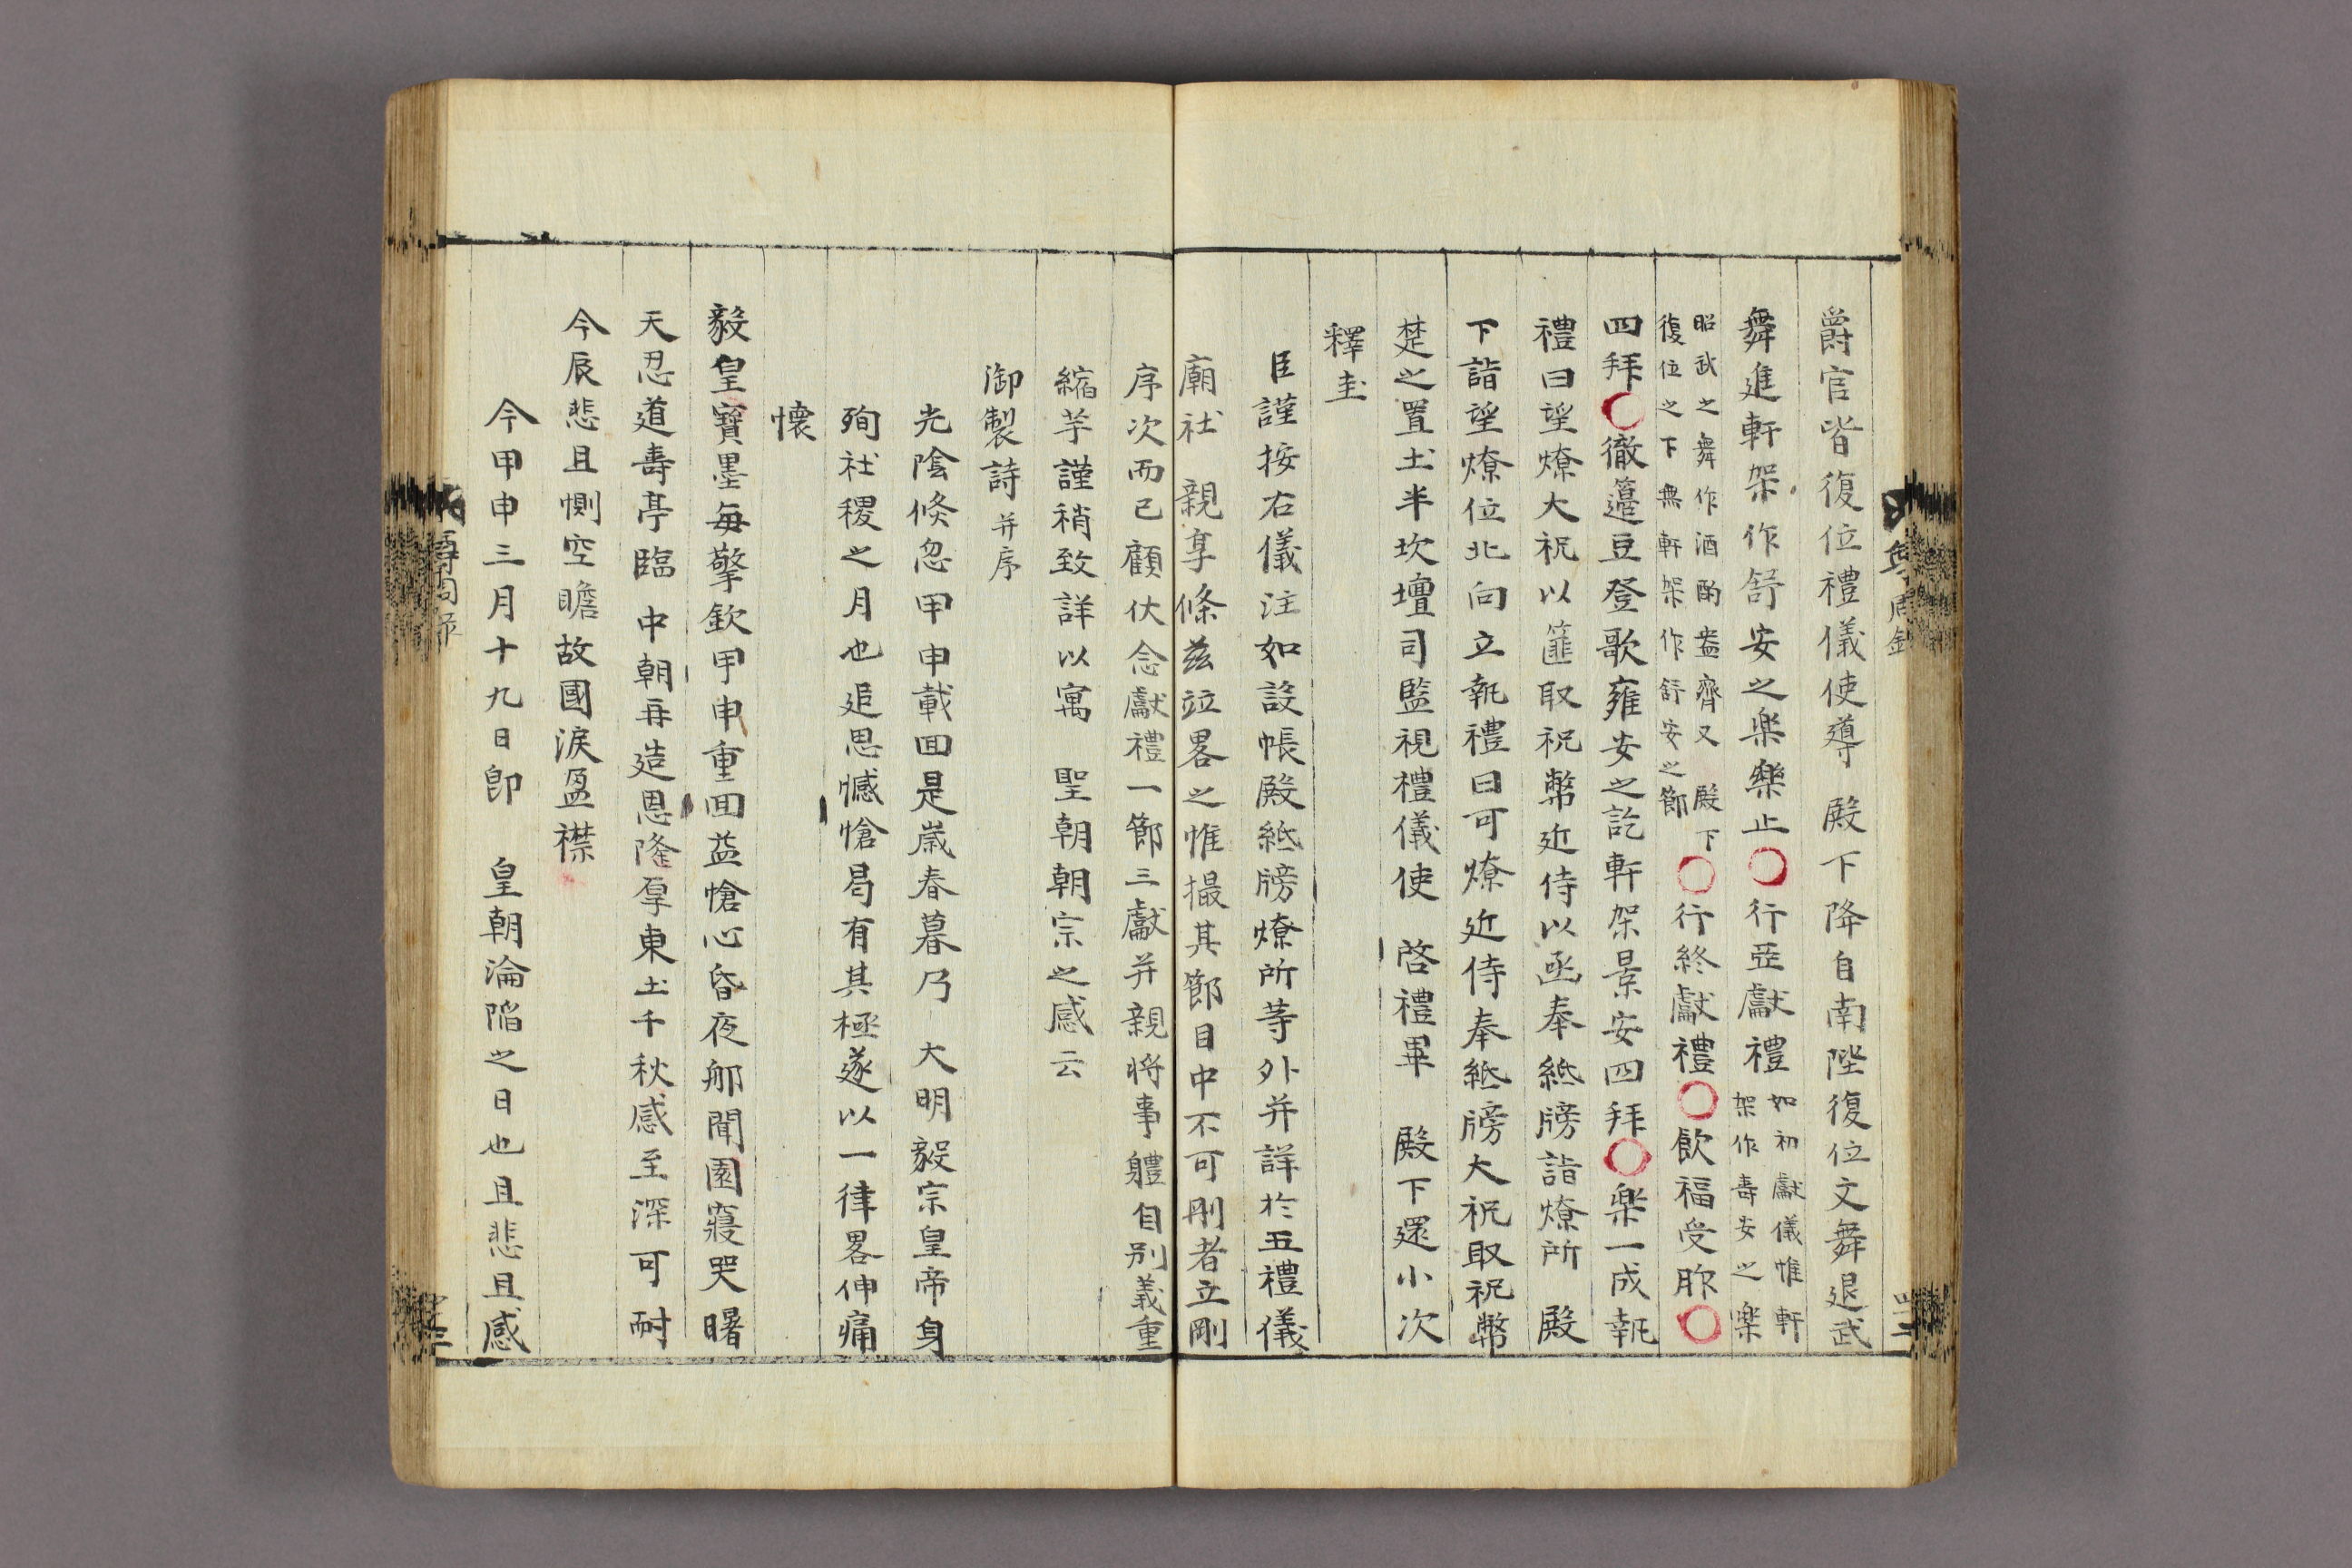 爵官皆復位禮儀使導 殿下降自南陛復位文舞退武
舞進軒架作舒安之楽樂止○行亞獻禮如初獻儀惟軒架作壽安之楽
昭武之舞作酒酌盎齊又 殿下復位之下無軒架作舒安之節○行終獻禮○飲福受胙○
四拜○徹籩豆登歌雍安之訖軒架景安四拜○楽一成執
禮曰望燎大祝以篚取祝幣近侍以函奉紙牓詣燎所 殿
下詣望燎位北向立執禮曰可燎近侍奉紙牓大祝取祝幣
楚之置土半坎壇司監視禮儀使 啓禮畢 殿下還小次
釋圭
臣謹按右儀注如設帳殿紙牓燎所等外并詳於五禮儀
廟社 親享條茲竝畧之惟撮其節目中不可刪者立剛
序次而已顧伏念獻禮一節三獻并親將事軆自別義重
縮芋謹稍致詳以寓 聖朝朝宗之感云
御製詩并序
光陰倐忽甲申載回是歲春暮乃 大明毅宗皇帝身
殉社稷之月也追思憾愴曷有其極遂以一律畧伸痛
懷
毅皇寶墨每擎欽甲申重回益愴心昏夜郍聞園寢哭曙
天忍道壽亭臨 中朝再造恩隆厚東土千秋感至深可耐
今辰悲且惻空瞻故國淚盈襟
今甲申三月十九日卽 皇朝淪陷之日也且悲且感